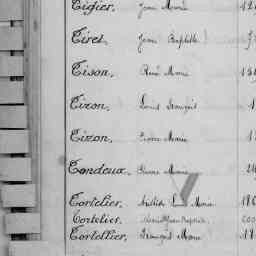 Tigier. Jean Marie 12
Tiret. Jean Baptiste
Tison. René Marie 13
Tizon. Louis François 1
Tizon. Pierre Marie 1
Tondeux. Pierre Marie 2
Tortelier. Marie 18
Tortelier. Jean Baptiste
Tortellier. François Marie 19